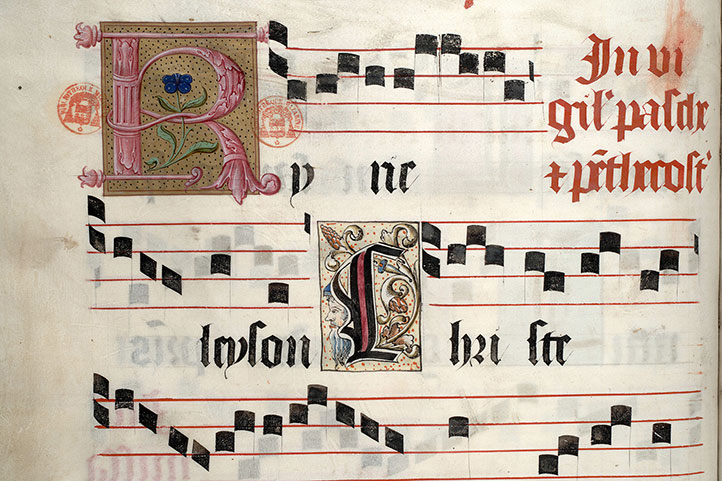 In vi
gil' paſche
⁊ pēthecoſt'
Ky rie
leyſon Chri ſte